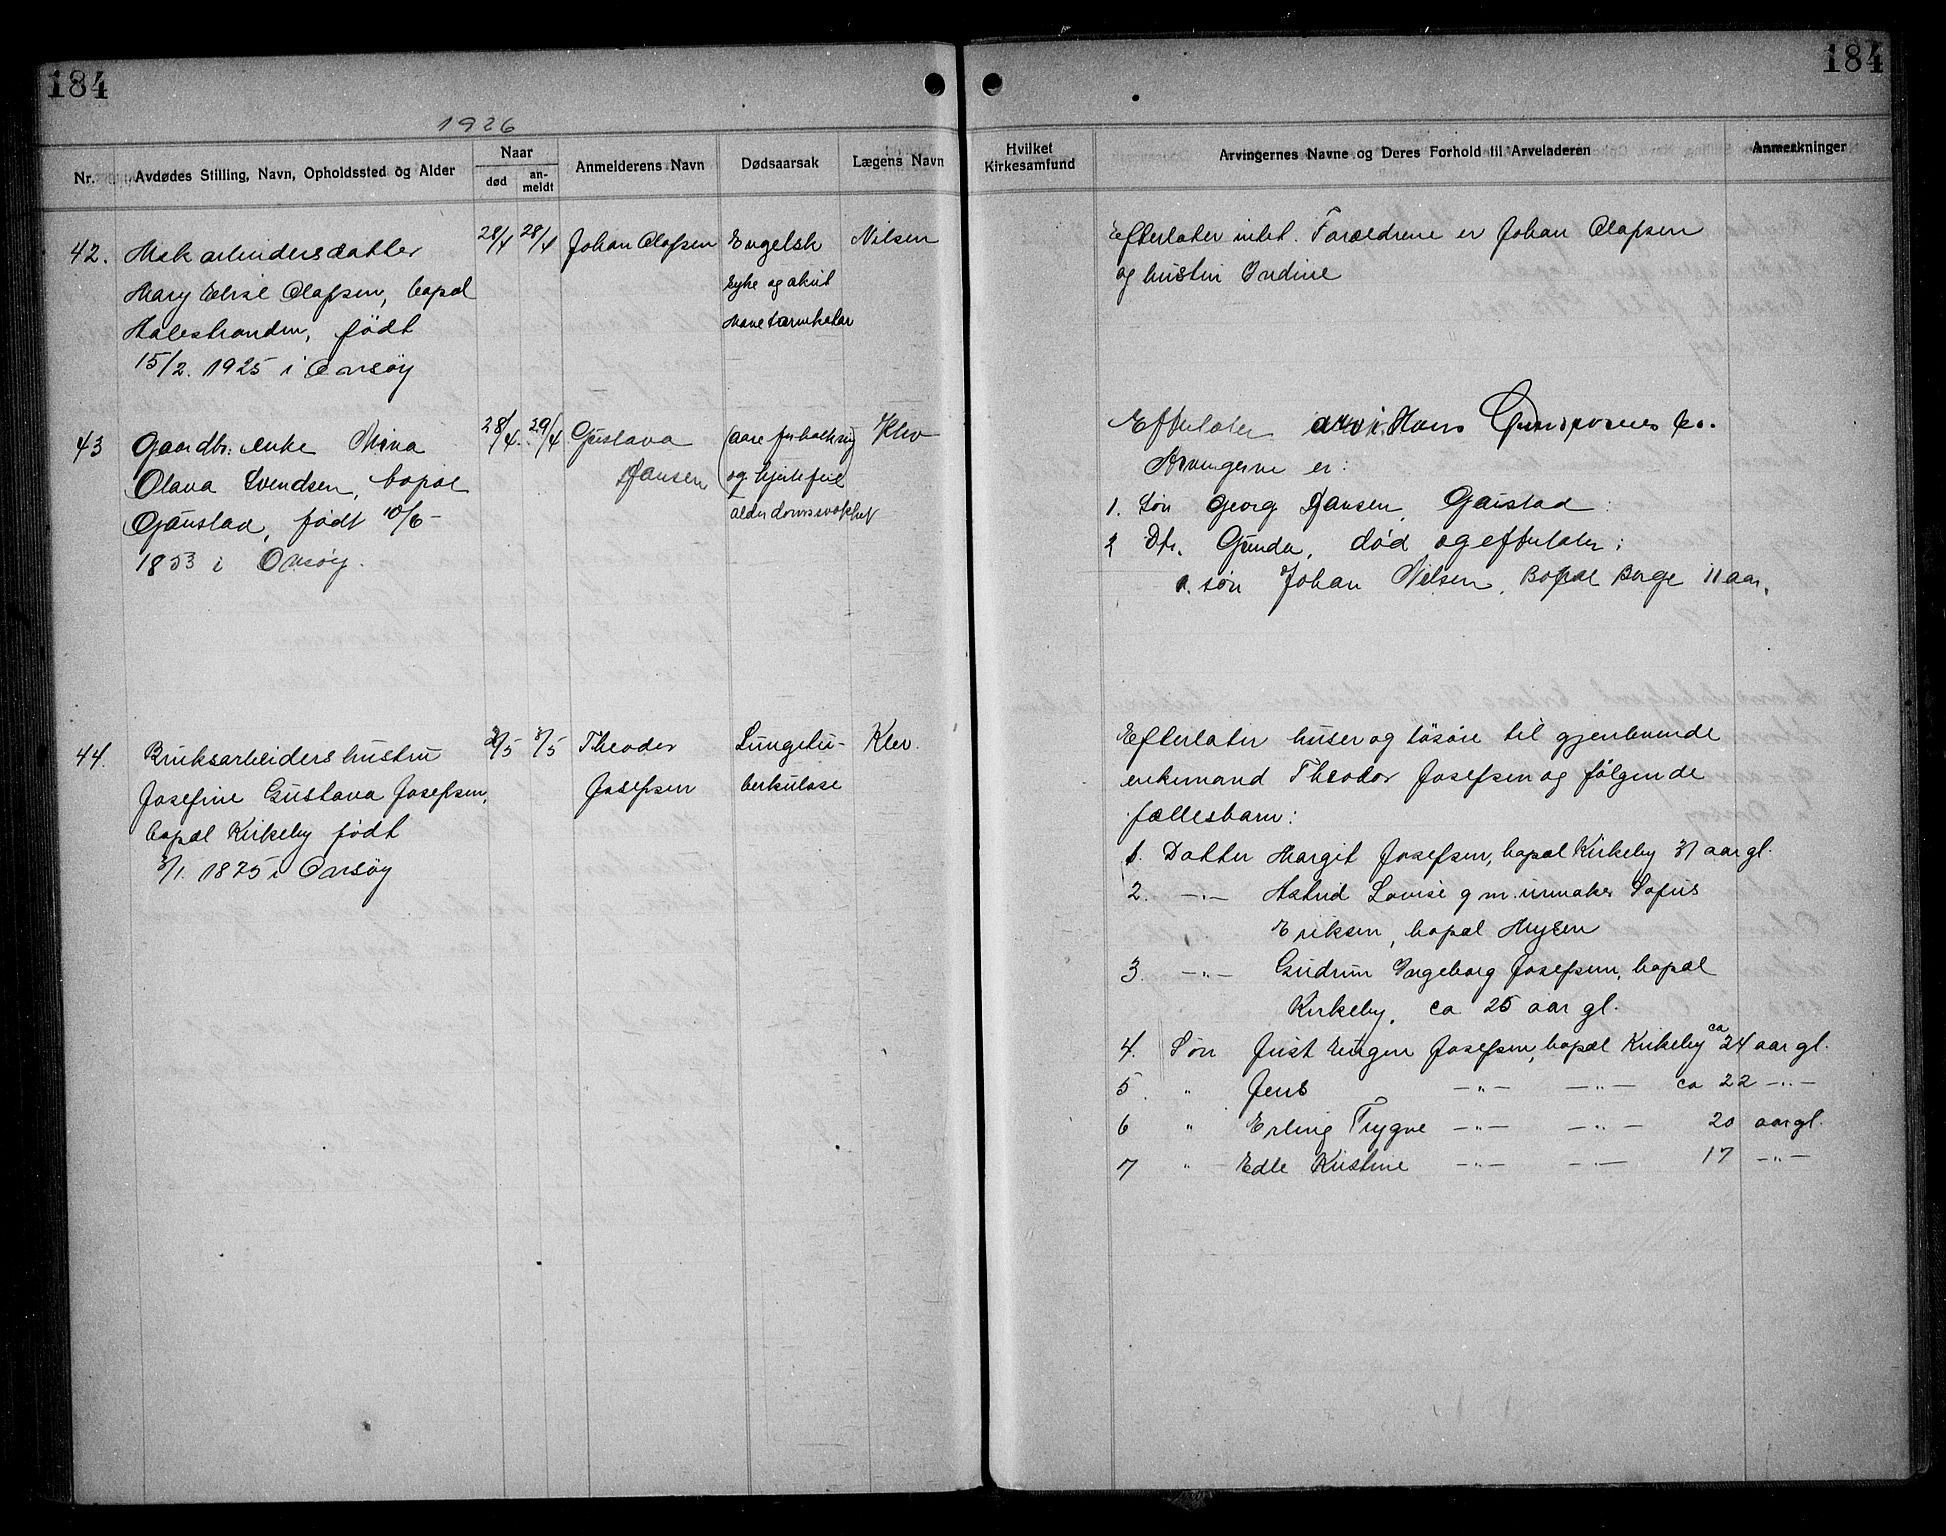 184
184
1926
Nr.
Avdødes Stilling, Navn, Opholdssted og Alder
Naar
død
an-
meldt
Anmelderens Navn
Dødsaarsak
Lægens Navn
Hvilket
Kirkesamfund
Arvingernes Navne og Deres Forhold til Arveladeren
Anmerkninger
42.
Mek arbeidersdatter
Mary Elise Olafsen, bopæl
født
15/2. 1925 i Onsøy
28/4
28/4
Johan Olafsen
Engelsk
syke og akut
Mavetarmkatar
Nilsen
Efterlater intet. Forældrene er Johan Olafsen
og hustru Indine
43
Gaardbr. enke Mina
Olava Svendsen, bopæl
Gaustad, født 10/6-
1853 i Onsøy.
28/4.
29/4
Gustava
Hansen
(aareforkalkning
og hjertefeil)
alderdomssvakhet
Klev
Efterlater arv i Hans
Arvingerne er:
1. Søn Georg Hansen, Gaustad
2 Dtr. Gunda, død og efterlater:
a. søn Johan Nilsen, Bopæl Borge 11 aar.
44.
Bruksarbeiders hustru
Josefine Gustava Josefsen,
bopæl Kirkeby født
3/1. 1875 i Onsøy
2/5
3/5
Theodor
Josefsen
Lungetu-
berkulose
Klev.
Efterlater huser og løsøre til gjenlevende
enkemand Theodor Josefsen og følgende
fællesbarn:
1. Datter Margit Josefsen, bopæl Kirkeby 31 aar gl.
2. —„— Astrid Lovise g m. urmaker Sofus
Eriksen, bopæl Mysen
3. —„— Gudrun Ingeborg Josefsen, bopæl
Kirkeby, ca 25 aar gl.
4. Søn Just Eugen Josefsen, bopæl Kirkeby ca 24 aar gl.
5. " Jens —„— —„— ca 22 —„—
6 " Erling Trygve —„— —„— 20 aar gl.
7 " Edle Kristine —„— —„— 17 —„—